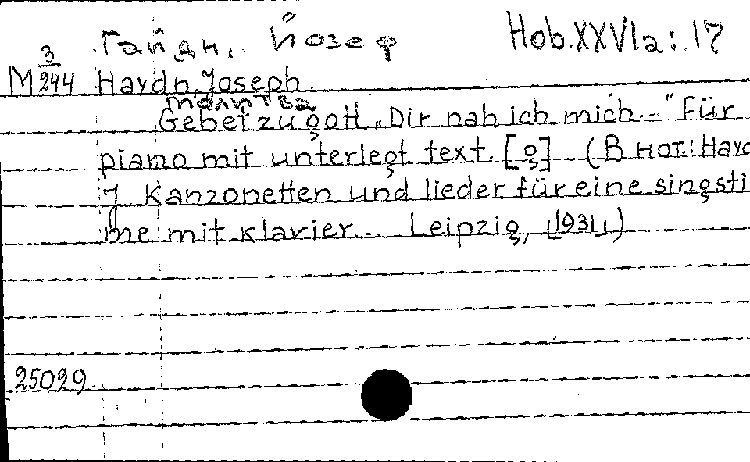 Гайдн, Йозеф Hob.XXVIa: 17
М 3/244 Haydn, Joseph.
молитва
Gebet zu gott „Dir nah ich mich..." Für
piano mit unterlegt text. [g] (В нот.: Hayd
7 Kanzonetten und lieder für eine singsti
me mit klavier... Leipzig, [1931])
25029